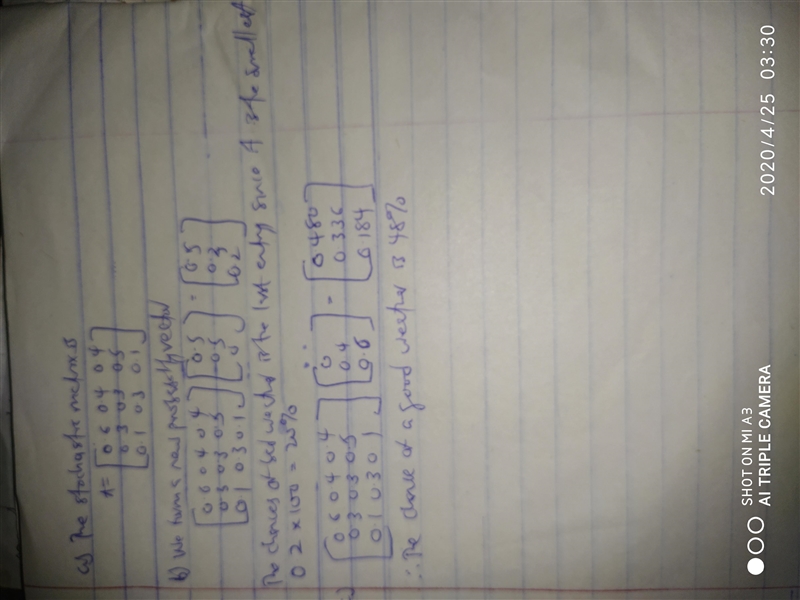 a) The stochastic matrix is
A = [0.6 0.4 0.4
0.3 0.3 0.5
0.1 0.3 0.1]
b) We form a new probability vector
[0.6 0.4 0.4
0.3 0.3 0.5
0.1 0.3 0.1] [0.5
0.5
0] = [0.5
0.3
0.2]
The chances of bad weather is the last entry since A is the smallest
0.2 x 100 = 20%
[0.6 0.4 0.4
0.3 0.3 0.5
0.1 0.3 0.1] [0
0.4
0.6] = [0.480
0.336
0.184]
∴ The chance of a good weather is 48%
SHOT ON MI A3
AI TRIPLE CAMERA
2020/4/25 03:30